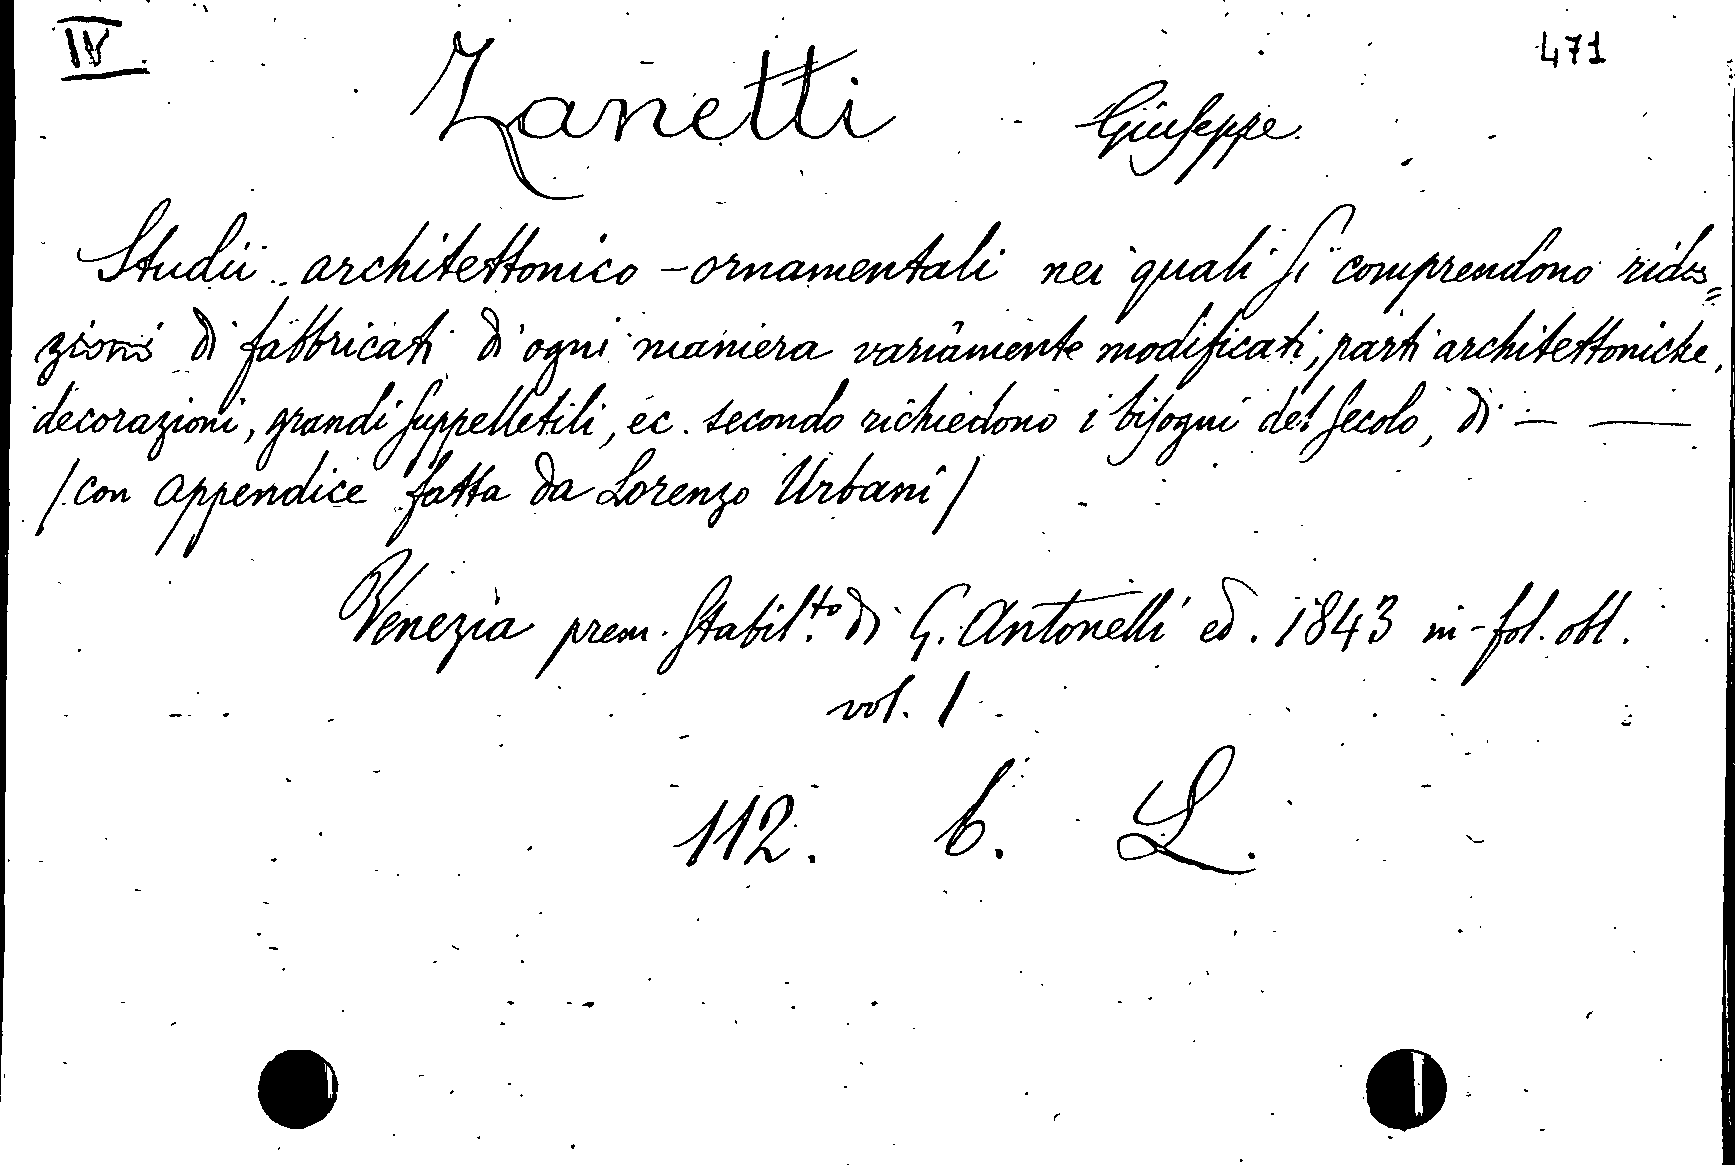 IV. 471
Zanetti Giuseppe.
Studii architettonico-ornamentali nei quali si comprendono ridu=
zioni di fabbricati di ogni maniera variamente modificati, parti architettoniche,
decorazioni, grandi suppelletili, ec. secondo richiedono i bisogni del secolo, di — —
/con appendice fatta da Lorenzo Urbani/
Venezia prem. Stabil.to di G. Antonelli ed. 1843 in-fol. obl.
vol. 1
112. b. L.